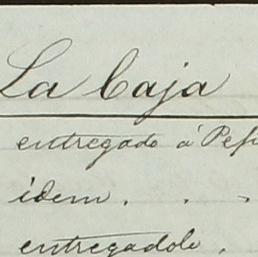 La Caja
entregado á Pep
idem . . .
entregadole .